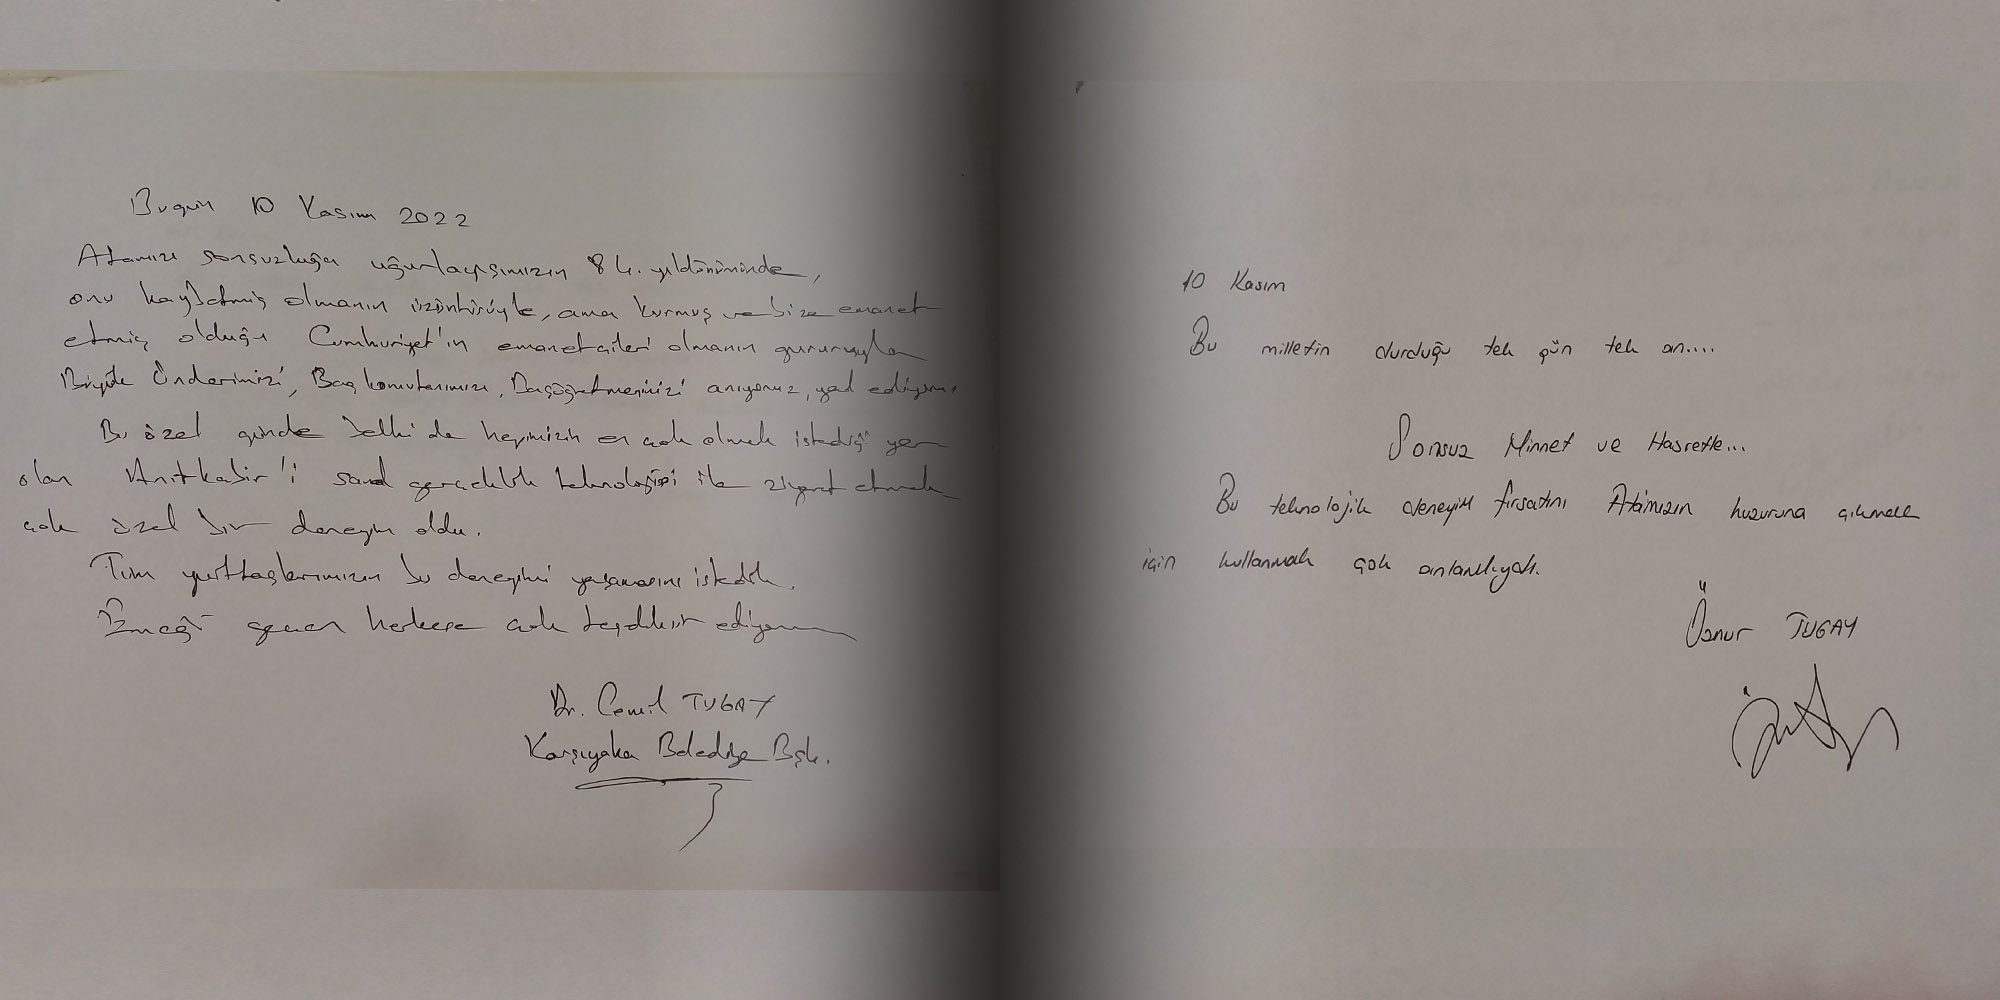 Bugün 10 Kasım 2022
Atamızı sonsuzluğa uğurlayışımızın 84. yıldönümünde,
onu kaybetmiş olmanın üzüntüsüyle, ama kurmuş ve bize emanet
etmiş olduğu Cumhuriyet'in emanetçileri olmanın gururuyla
Büyük Önderimizi, Başkomutanımızı, Başöğretmenimizi anıyoruz, yad ediyoruz
Bu özel günde belki de hepimizin en çok olmak istediği yer
olan Anıtkabir'i sanal gerçeklik teknolojisi ile ziyaret etmek
çok özel bir deneyim oldu.
Tüm yurttaşlarımızın bu deneyimi yaşamasını isterdik.
Emeği geçen herkese çok teşekkür ediyorum
Dr. Cemil TUGAY
Karşıyaka Belediye Bşk.
10 Kasım
Bu milletin durduğu tek gün tek an....
Sonsuz Minnet ve Hasretle...
Bu teknolojik deneyim fırsatını Atamızın huzuruna çıkmak
için kullanmak çok anlamlıydı.
Öznur TUGAY